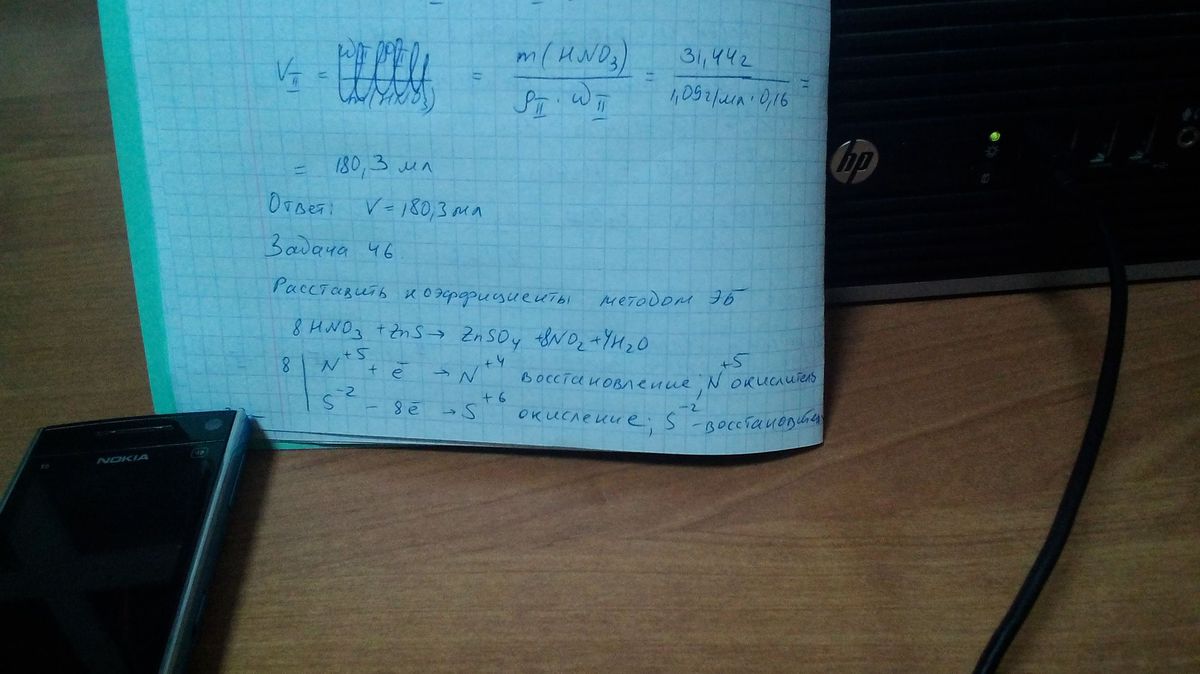 V_II = = m(HNO₃) / ρ_II · ω_II = 31,44г / 1,09г/мл · 0,16 =
= 180,3 мл
Ответ: V = 180,3 мл
Задача 46.
Расставить коэффициенты методом ЭБ
8HNO₃ + ZnS → ZnSO₄ + 8NO₂ + 4H₂O
8 | N⁺⁵ + ē → N⁺⁴ восстановление; N⁺⁵ окислитель
S⁻² - 8ē → S⁺⁶ окисление; S⁻² -
NOKIA
hp